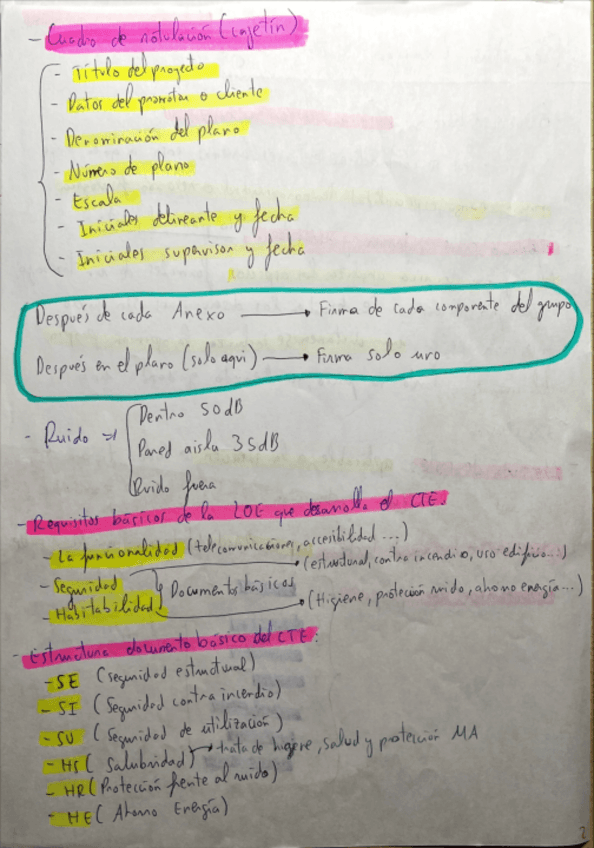 - Cuadro de rotulación (cajetín)
- Título del proyecto
- Datos del promotor o cliente
- Denominación del plano
- Número de plano
- Escala
- Iniciales delineante y fecha
- Iniciales supervisor y fecha
Después de cada Anexo → Firma de cada componente del grupo
Después en el plano (solo aqui) → Firma solo uno
- Ruido ⇒
Dentro 50dB
Pared aisla 35dB
Ruido fuera
- Requisitos básicos de la LOE que desarrolla el CTE:
- La funcionalidad (telecomunicaciones, accesibilidad...)
- Seguridad → (estructural, contra incendio, uso edificio...)
Documentos básicos
- Habitabilidad → (Higiene, protección ruido, ahorro energía...)
- Estructura documento básico del CTE:
- SE (seguridad estructural)
- SI (Seguridad contra incendio)
- SU (Seguridad de utilización)
- HS (Salubridad) → trata de higiene, salud y protección MA
- HR (Protección frente al ruido)
- HE (Ahorro Energía)
2